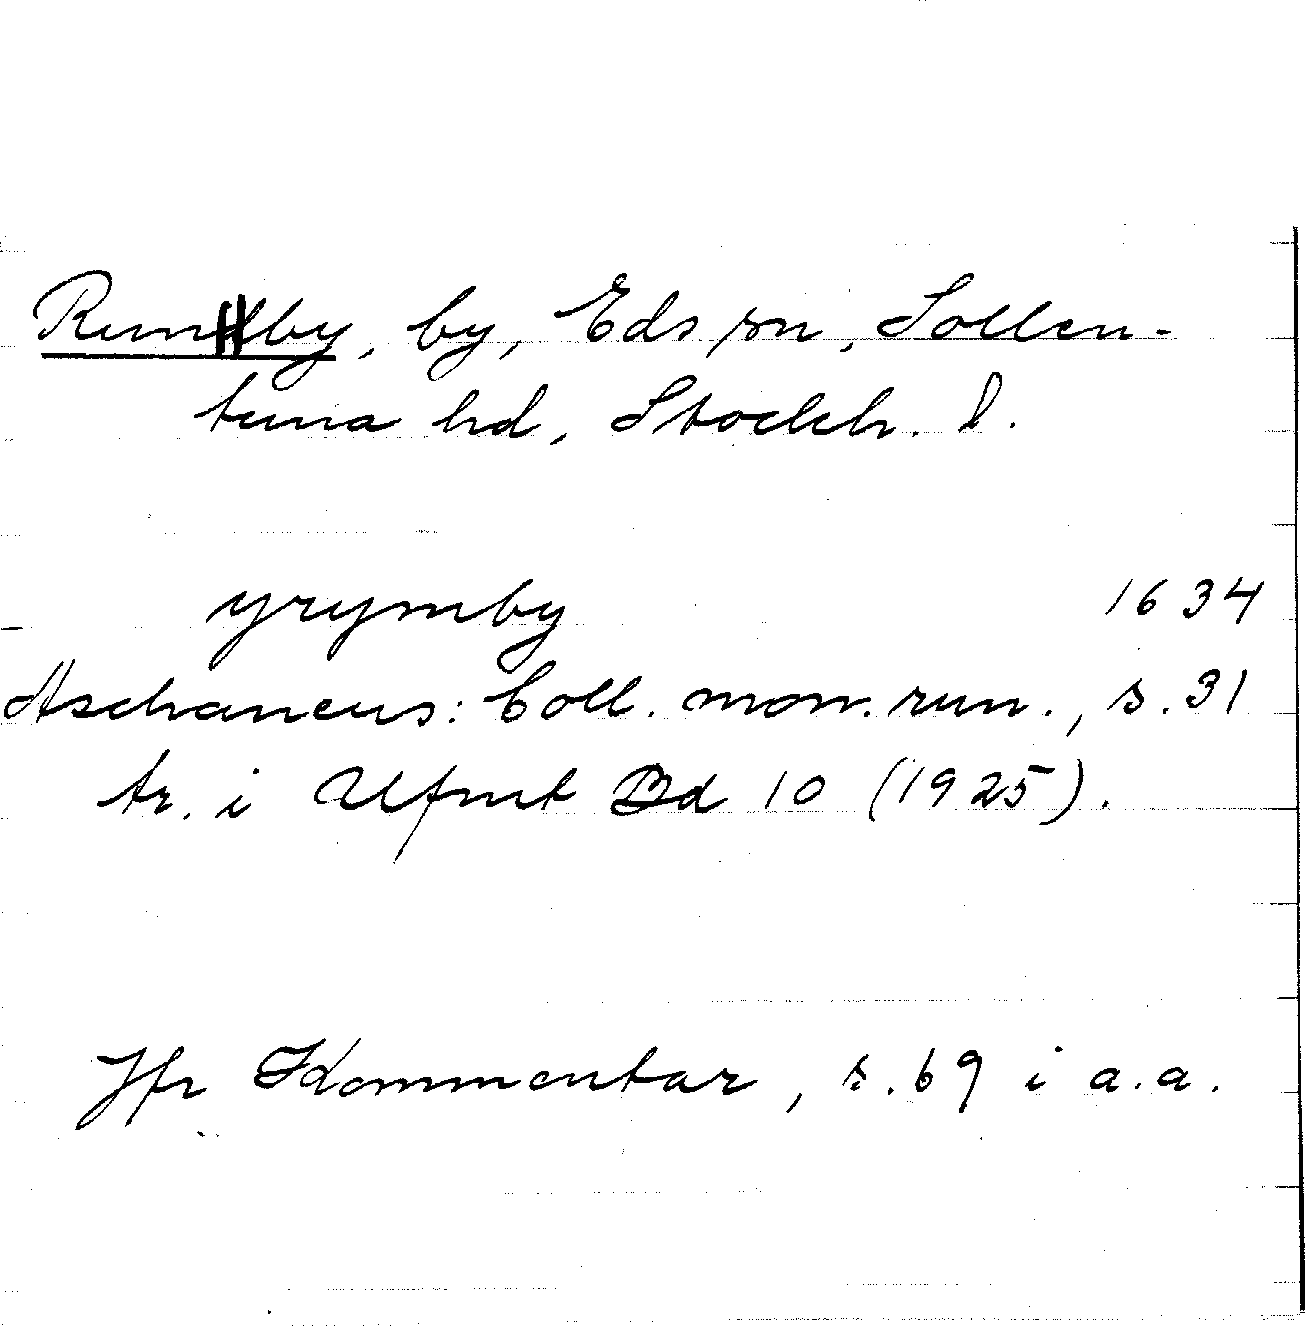 Runby, by, Eds sn, Sollen-
tuna hd, Stockh. l.
yrymby 1634
Aschaneus: Coll. mon. run., s. 31
tr. i Ufmt Bd 10 (1925).
Jfr Kommentar, s. 69 i a.a.